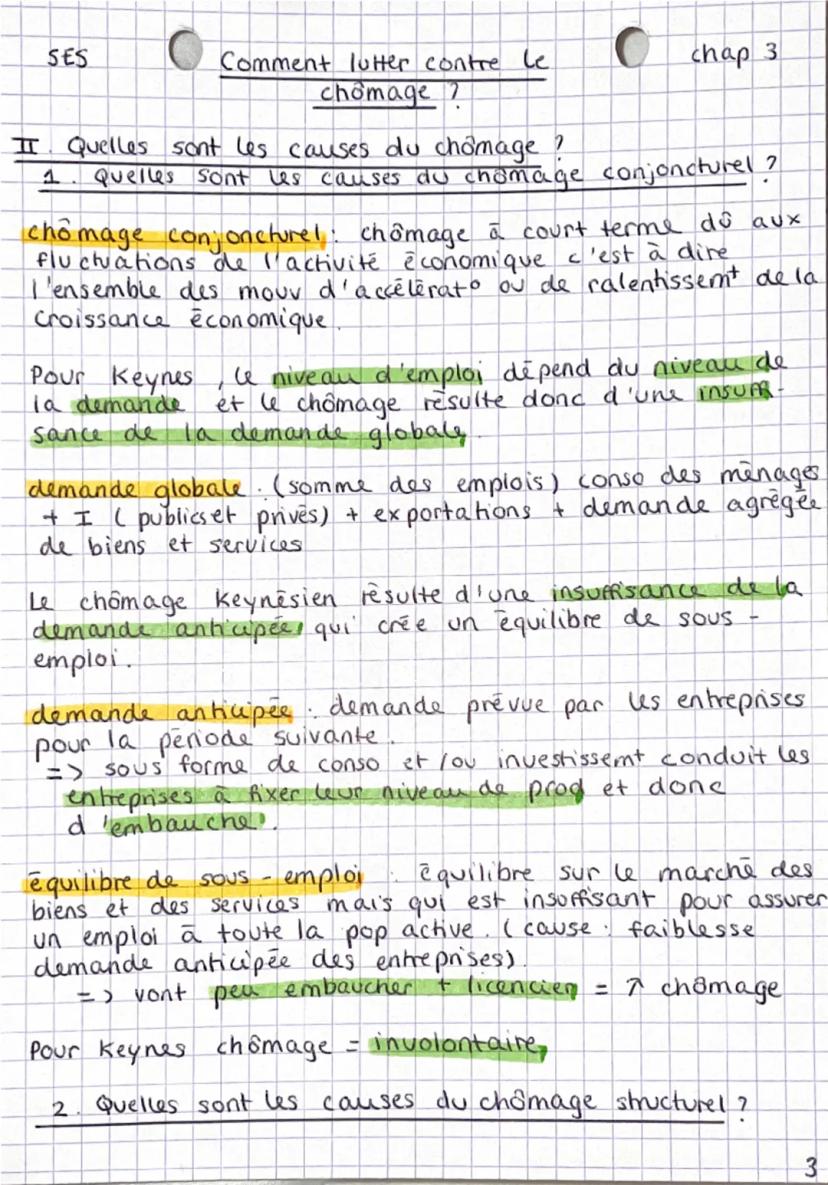 SES Comment lutter contre le chap 3
chômage ?
II. Quelles sont les causes du chômage ?
1. Quelles sont les causes du chômage conjoncturel ?
chômage conjoncturel : chômage à court terme dû aux
fluctuations de l'activité économique c'est à dire
l'ensemble des mouv d'accélérat° ou de ralentissemt de la
croissance économique.
Pour Keynes, le niveau d'emploi dépend du niveau de
la demande et le chômage résulte donc d'une insuffi-
sance de la demande globale.
demande globale : (somme des emplois) conso des ménages
+ I (publics et privés) + exportations + demande agrégée
de biens et services
Le chômage Keynésien résulte d'une insuffisance de la
demande anticipée, qui crée un équilibre de sous-
emploi.
demande anticipée : demande prévue par les entreprises
pour la période suivante.
=> sous forme de conso et/ou investissemt conduit les
entreprises à fixer leur niveau de prod et donc
d'embauche.
équilibre de sous-emploi : équilibre sur le marché des
biens et des services mais qui est insuffisant pour assurer
un emploi à toute la pop active. (cause : faiblesse
demande anticipée des entreprises).
=> vont peu embaucher + licencier = ↑ chômage
Pour Keynes chômage = involontaire,
2. Quelles sont les causes du chômage structurel ?
3